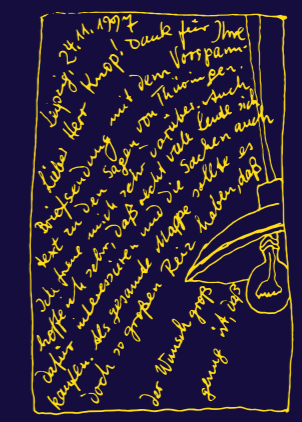 Leipzig, 24.11.1997
Lieber Herr Knop! Dank für Ihre
Briefsendung mit dem Vorspann-
text zu den Sagen von Thüringen.
Ich freue mich sehr darüber. Auch
hoffe ich sehr, daß recht viele Leute sich
dafür interessieren und die Sachen auch
kaufen. Als gesamte Mappe sollte es
doch so großen Reiz haben, daß
der Wunsch groß
genug ist, daß